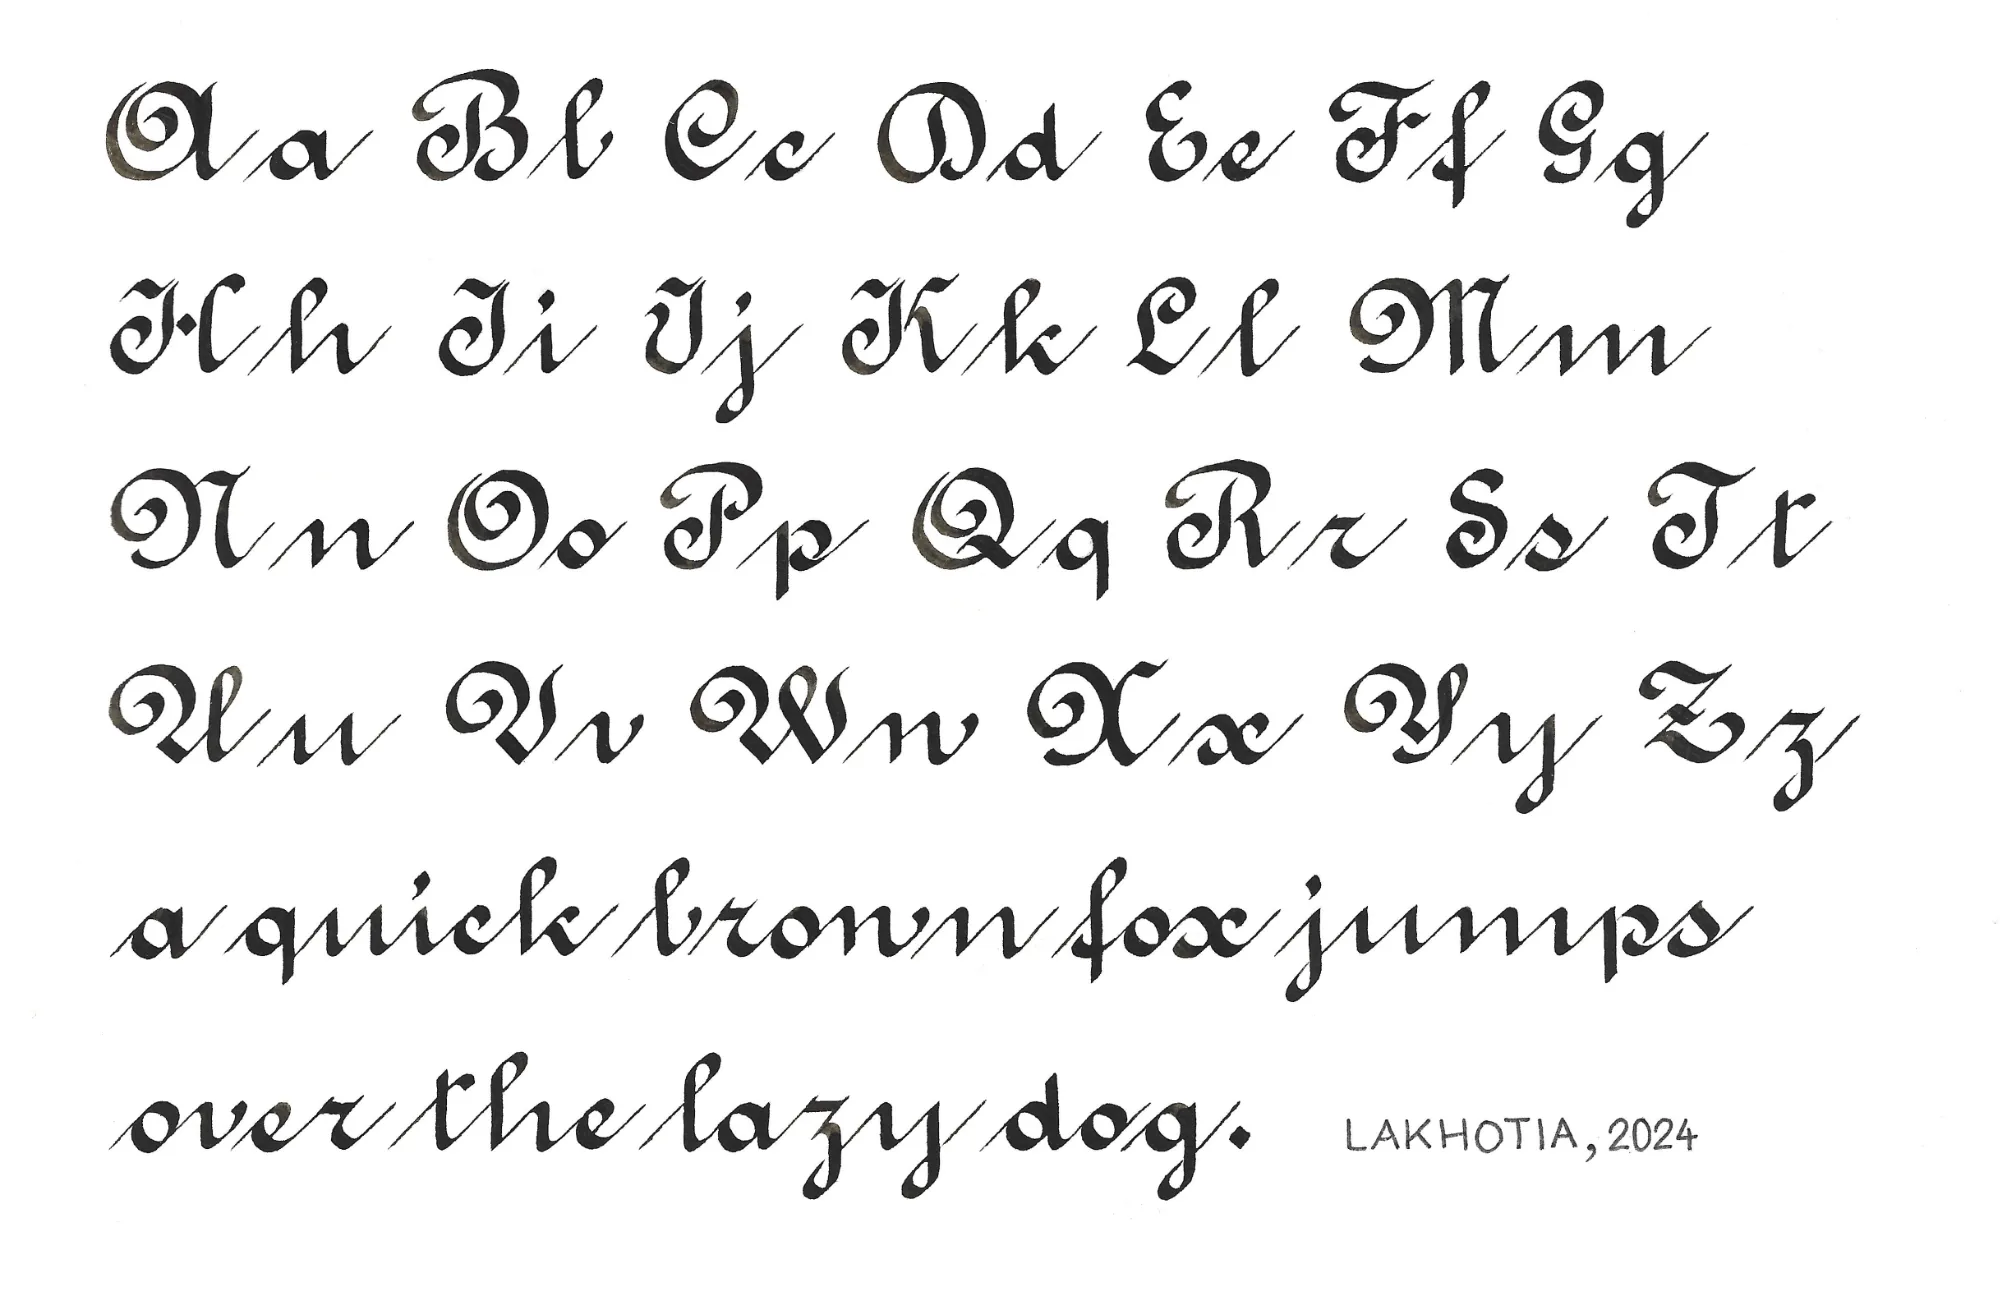 Aa Bb Cc Dd Ee Ff Gg
Hh Ii Jj Kk Ll Mm
Nn Oo Pp Qq Rr Ss Tt
Uu Vv Ww Xx Yy Zz
a quick brown fox jumps
over the lazy dog. LAKHOTIA, 2024